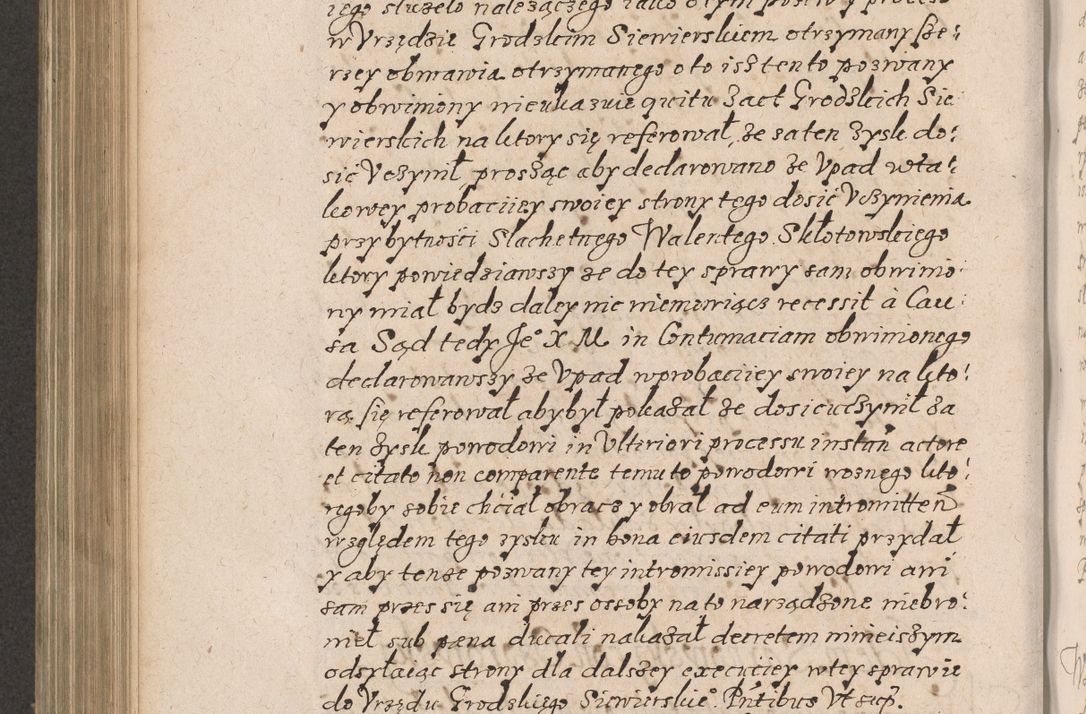 iego służeło należączego iako o tym pozew y proces
w Vrzędzie Grodzkim Siewierskiem otrzymany sze:
rzey obmawia otrzymanego o to isz ten to pozwany
y obwiniony nieukazuie quitu z act Grodzkich Sie
wierskich na ktory się referował, że za ten zysk do:
sić Vczynił, prosząc aby declarowano że Vpad w ta:
kowey probaciiey swoiey strony tego dosić Vczynienia
przy bytności Slachetnego Walentego Skłotowskiego
ktory powiedziawszy że do tey sprawy sam obwinio:
ny miał bydz daley nic niemowiącz recessit à Cau:
sa Sąd tedy Je° X M in Contumaciam obwinionego
declarowawszy że Vpad w probaciiey swoiey na kto:
rą się referował aby był pokazał że dosic uczynił za
ten zysk powodowi in Vlteriori processu instan actore
et citato non comparente temu to powodowi woznego kto:
regoby sobie chciał obracz y obrał ad eum intromitten
względem tego zysku in bona eiusdem citati przydał
y aby tenże pozwany tey intromissiey powodowi ani
sam przes się ani przes ossoby na to narządzone niebro:
nieł sub pæna ducali nakazał decretem ninieiszym
odsyłaiąc strony dla dalszey execuciey w tey sprawie
do Vrzędu Grodzkiego Siewierskie° Pntibus Vt sup.